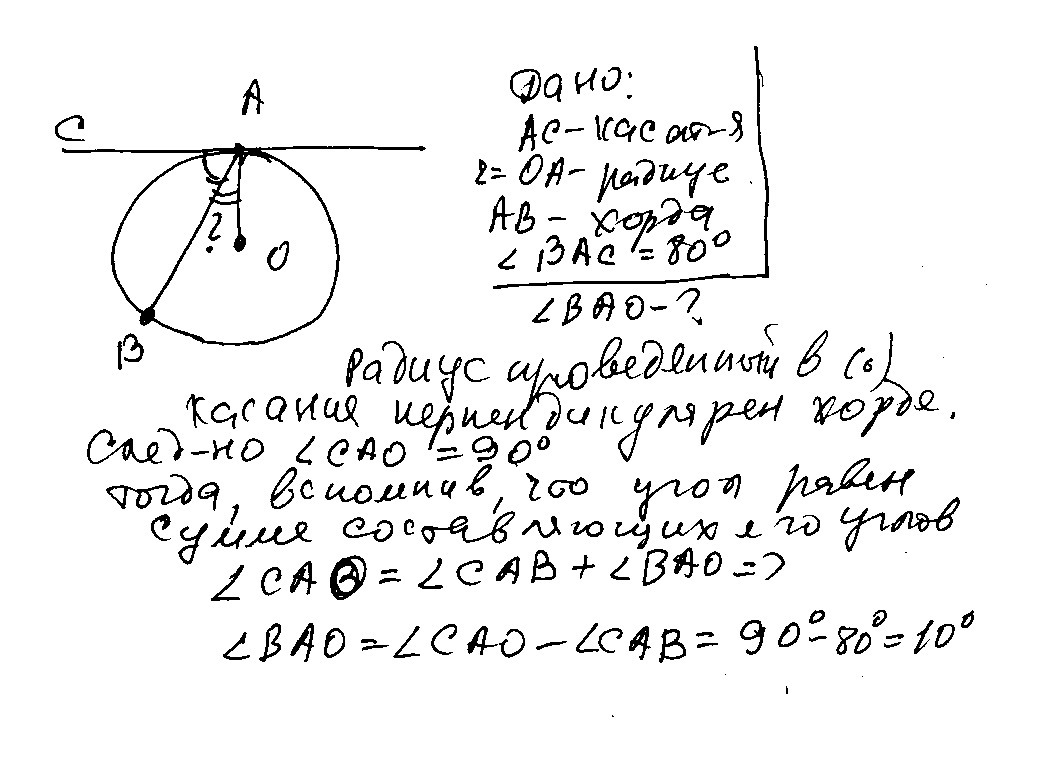 A
C
?
O
B
Дано:
AC - касат-я
r = OA - радиус
AB - хорда
∠BAC = 80°
∠BAO - ?
Радиус проведённый в (·)
касания перпендикулярен хорде.
След-но ∠CAO = 90°
тогда, вспомнив, что угол равен
сумме составляющих его углов
∠CAO = ∠CAB + ∠BAO =>
∠BAO = ∠CAO - ∠CAB = 90° - 80° = 10°